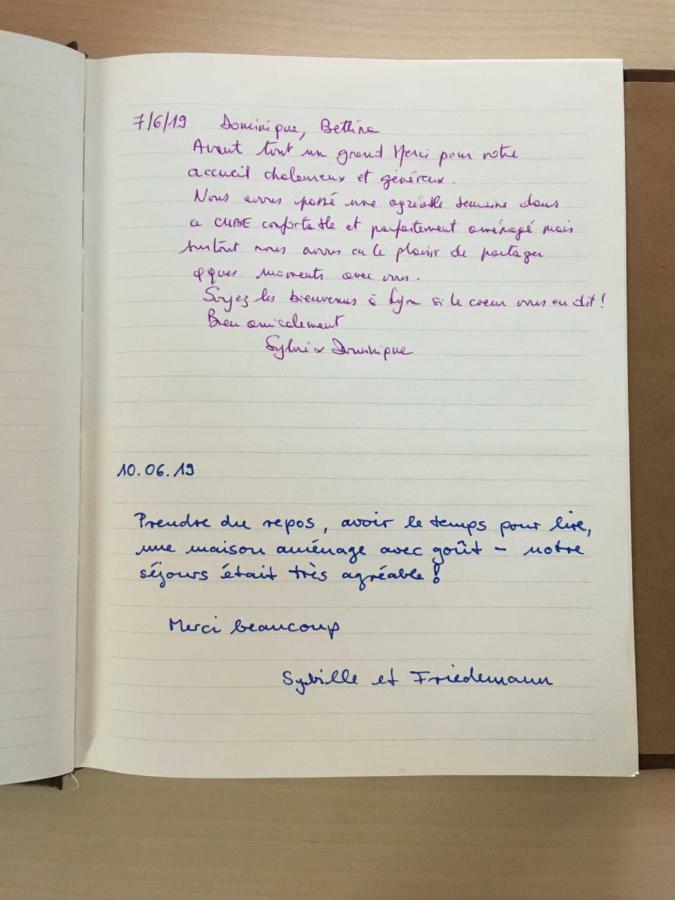 7/6/19 Dominique, Bettina
Avant tout un grand Merci pour votre
accueil chaleureux et généreux.
Nous avons passé une agréable semaine dans
ce CUBE confortable et parfaitement aménagé mais
surtout nous avons eu le plaisir de partager
qques moments avec vous.
Soyez les bienvenus à Lyon si le coeur vous en dit!
Bien amicalement
Dominique
10.06.19
Prendre du repos, avoir le temps pour lire,
une maison aménage avec goût - notre
séjours était très agréable!
Merci beaucoup
Sybille et Friedemann